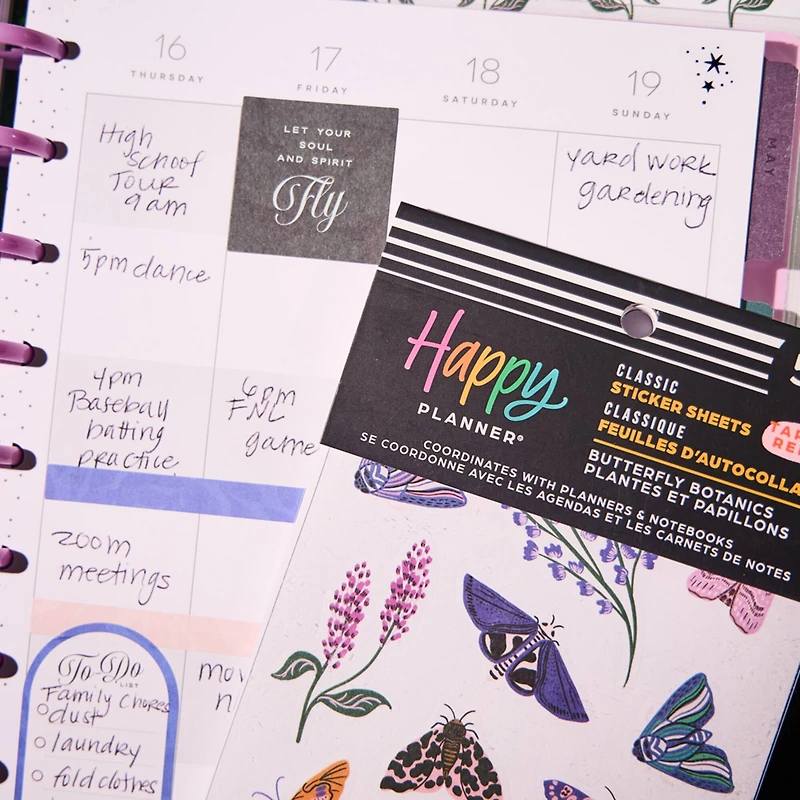 16
THURSDAY
17
FRIDAY
18
SATURDAY
19
SUNDAY
MAY
High
school
Tour
9am
LET YOUR
SOUL
AND SPIRIT
Fly
yard work
gardening
5pm dance
4pm
Baseball
batting
practice
6pm
FNL
game
zoom
meetings
To-Do
LIST
Family Chores
dust
laundry
fold clothes
Happy
PLANNER®
CLASSIC
STICKER SHEETS
CLASSIQUE
FEUILLES D'AUTOCOLLA
BUTTERFLY BOTANICS
PLANTES ET PAPILLONS
COORDINATES WITH PLANNERS & NOTEBOOKS
SE COORDONNE AVEC LES AGENDAS ET LES CARNETS DE NOTES